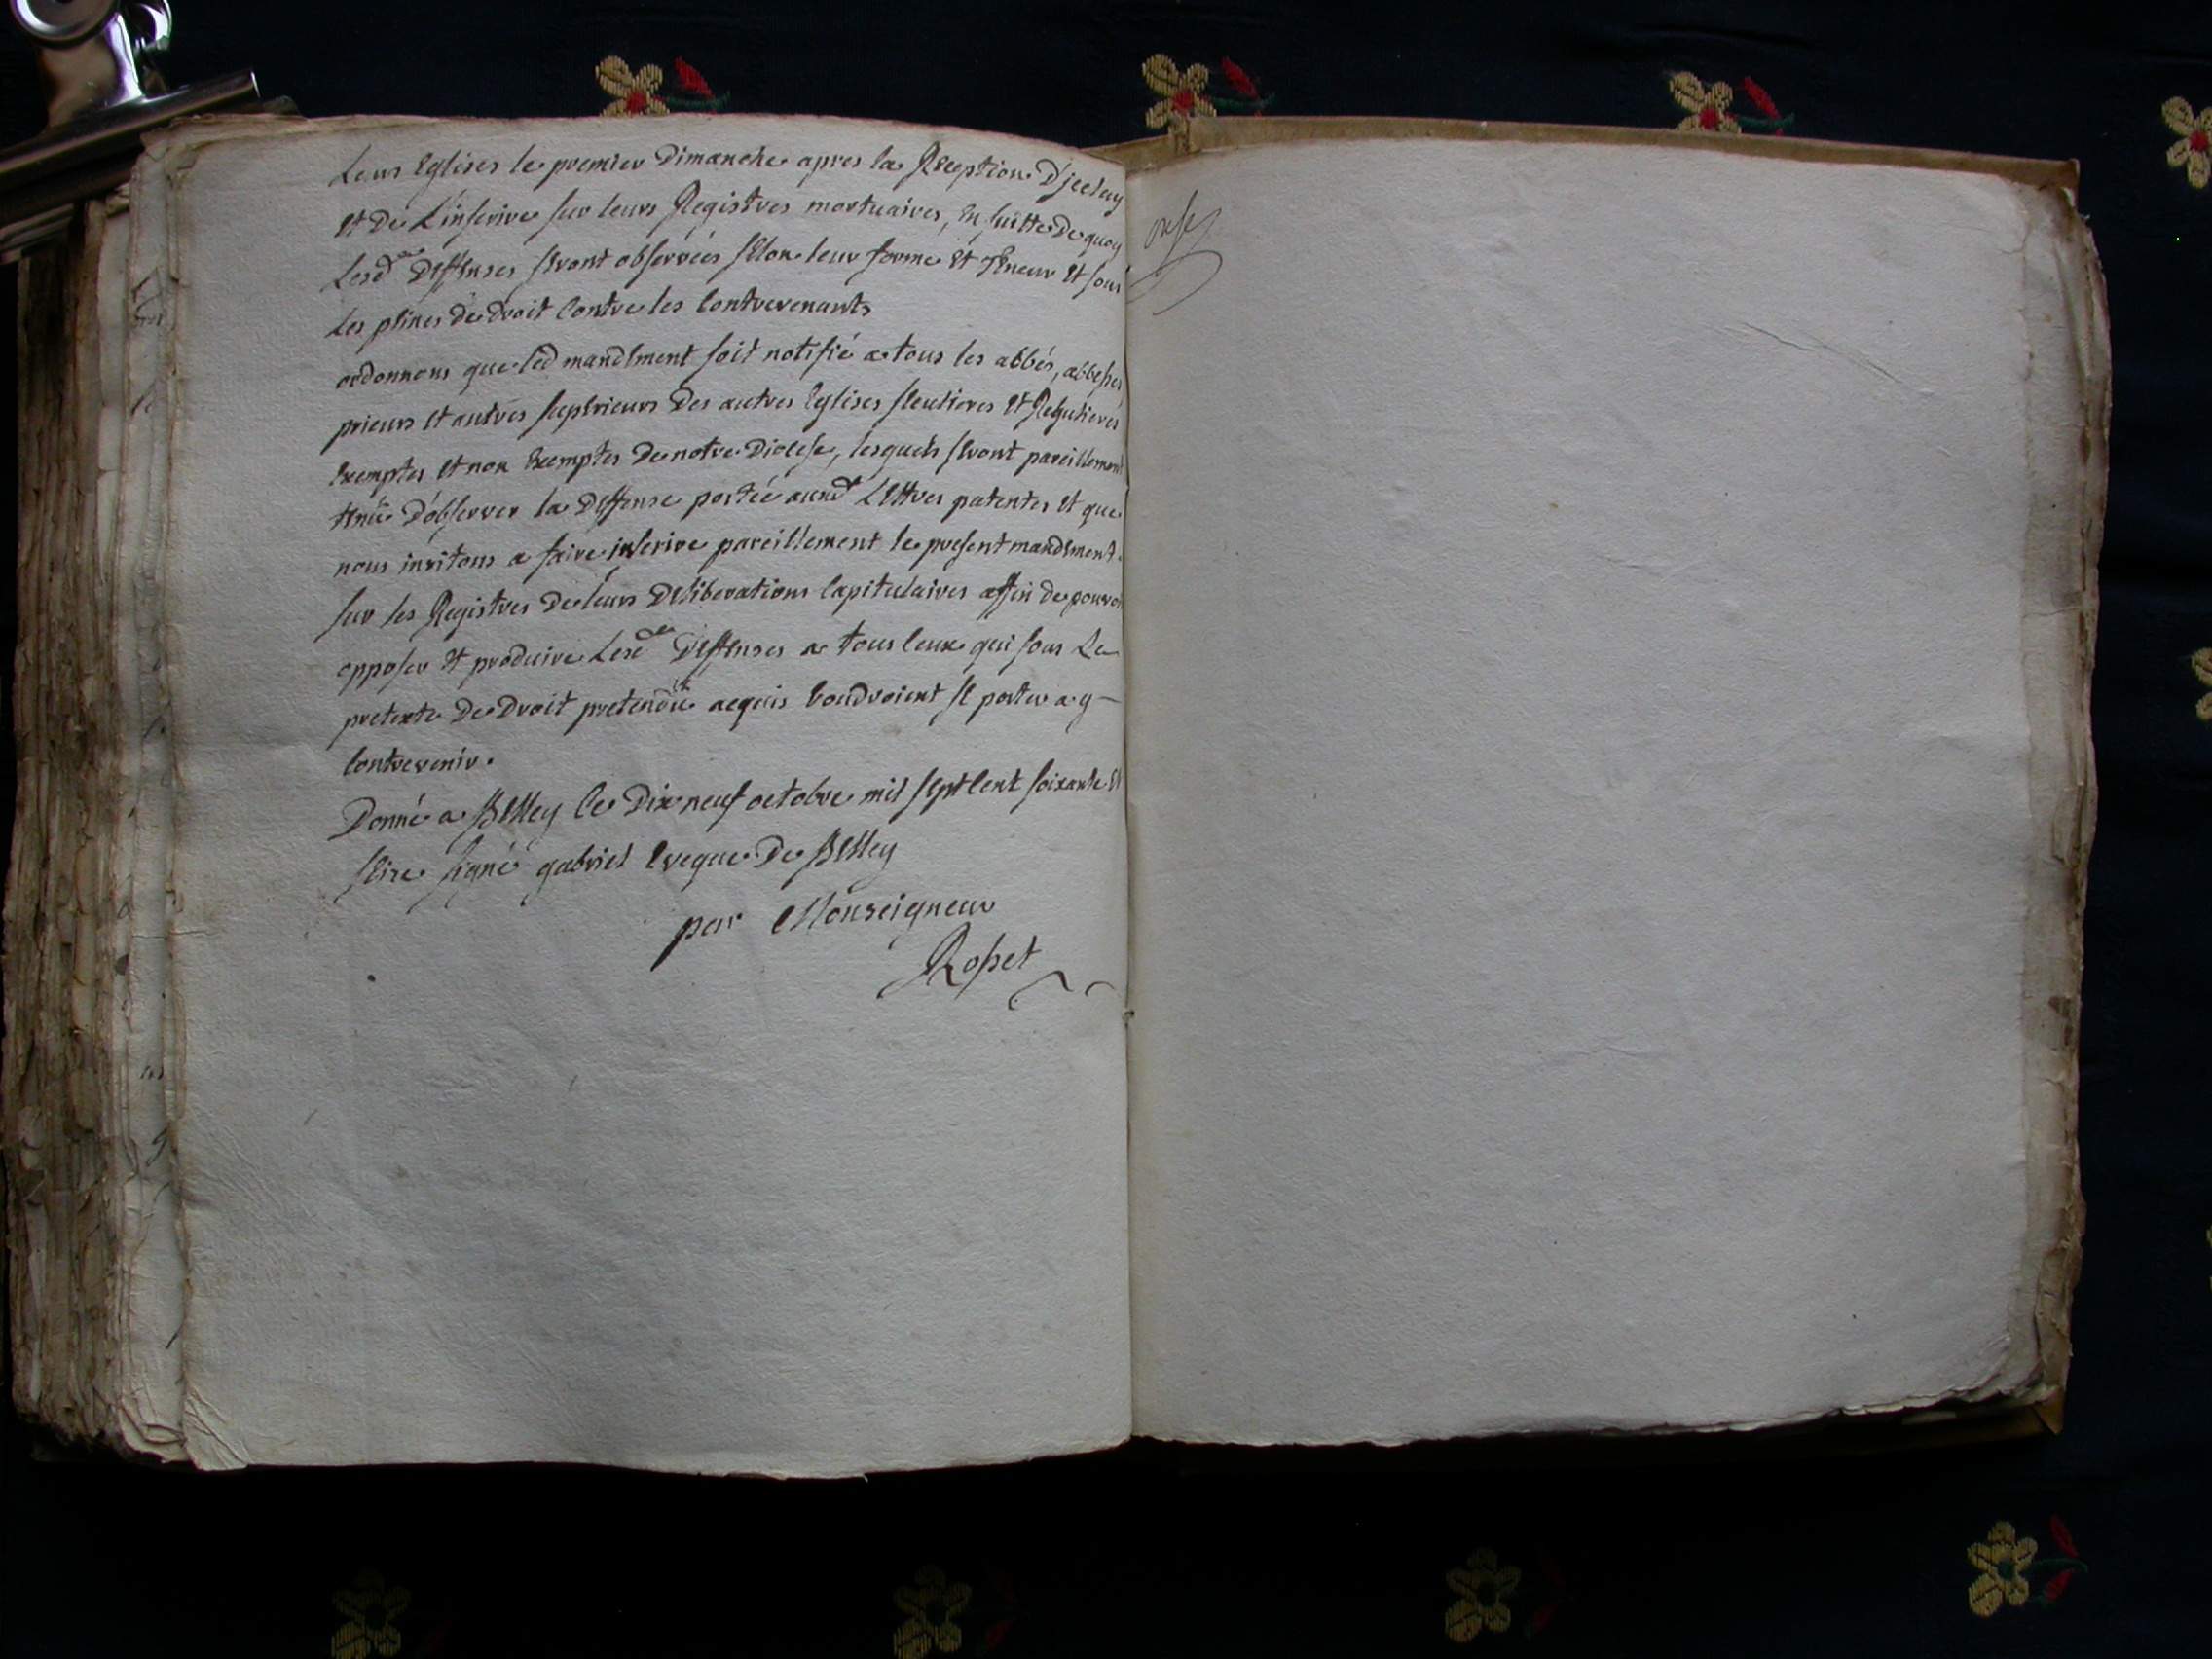 Leurs Eglises le premier Dimanche apres la Reception D'jceluy
Et De L'inscrire sur leurs Registres mortuaires, En suitte De quoy
Lesd.es Deffenses seront observées selon leur forme Et Teneur Et sous
Les peines De droit Contre les Contrevenants
ordonnons que led mandement soit notifié a tous les abbés, abbesses
prieurs Et autres superieurs Des autres Eglises seculieres Et Regulieres
Exemptes Et non Exemptes De notre Diocese, lesquels seront pareillement
tenus D'observer la Deffense portée auxd. Lettres patentes Et que
nous invitons a faire inscrire pareillement le present mandement
sur les Registres De leurs Deliberations Capitulaires affin de pouvoi
opposer Et produire Lesd.es Deffenses a tous Ceux qui sous Le
pretexte De Droit pretendu acquis Voudroient se porter a y
Contrevenir.
Donné a Belley Ce Dix neuf octobre mil sept Cent soixante Et
seize signé gabriel Eveque De Belley
par Monseigneur
Rosset